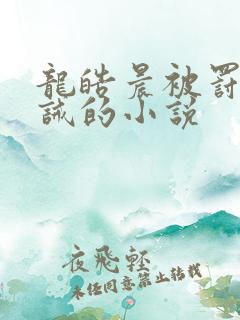 龍皓晨被罰
誡的小説
夜飛輕
未经同意禁止转载